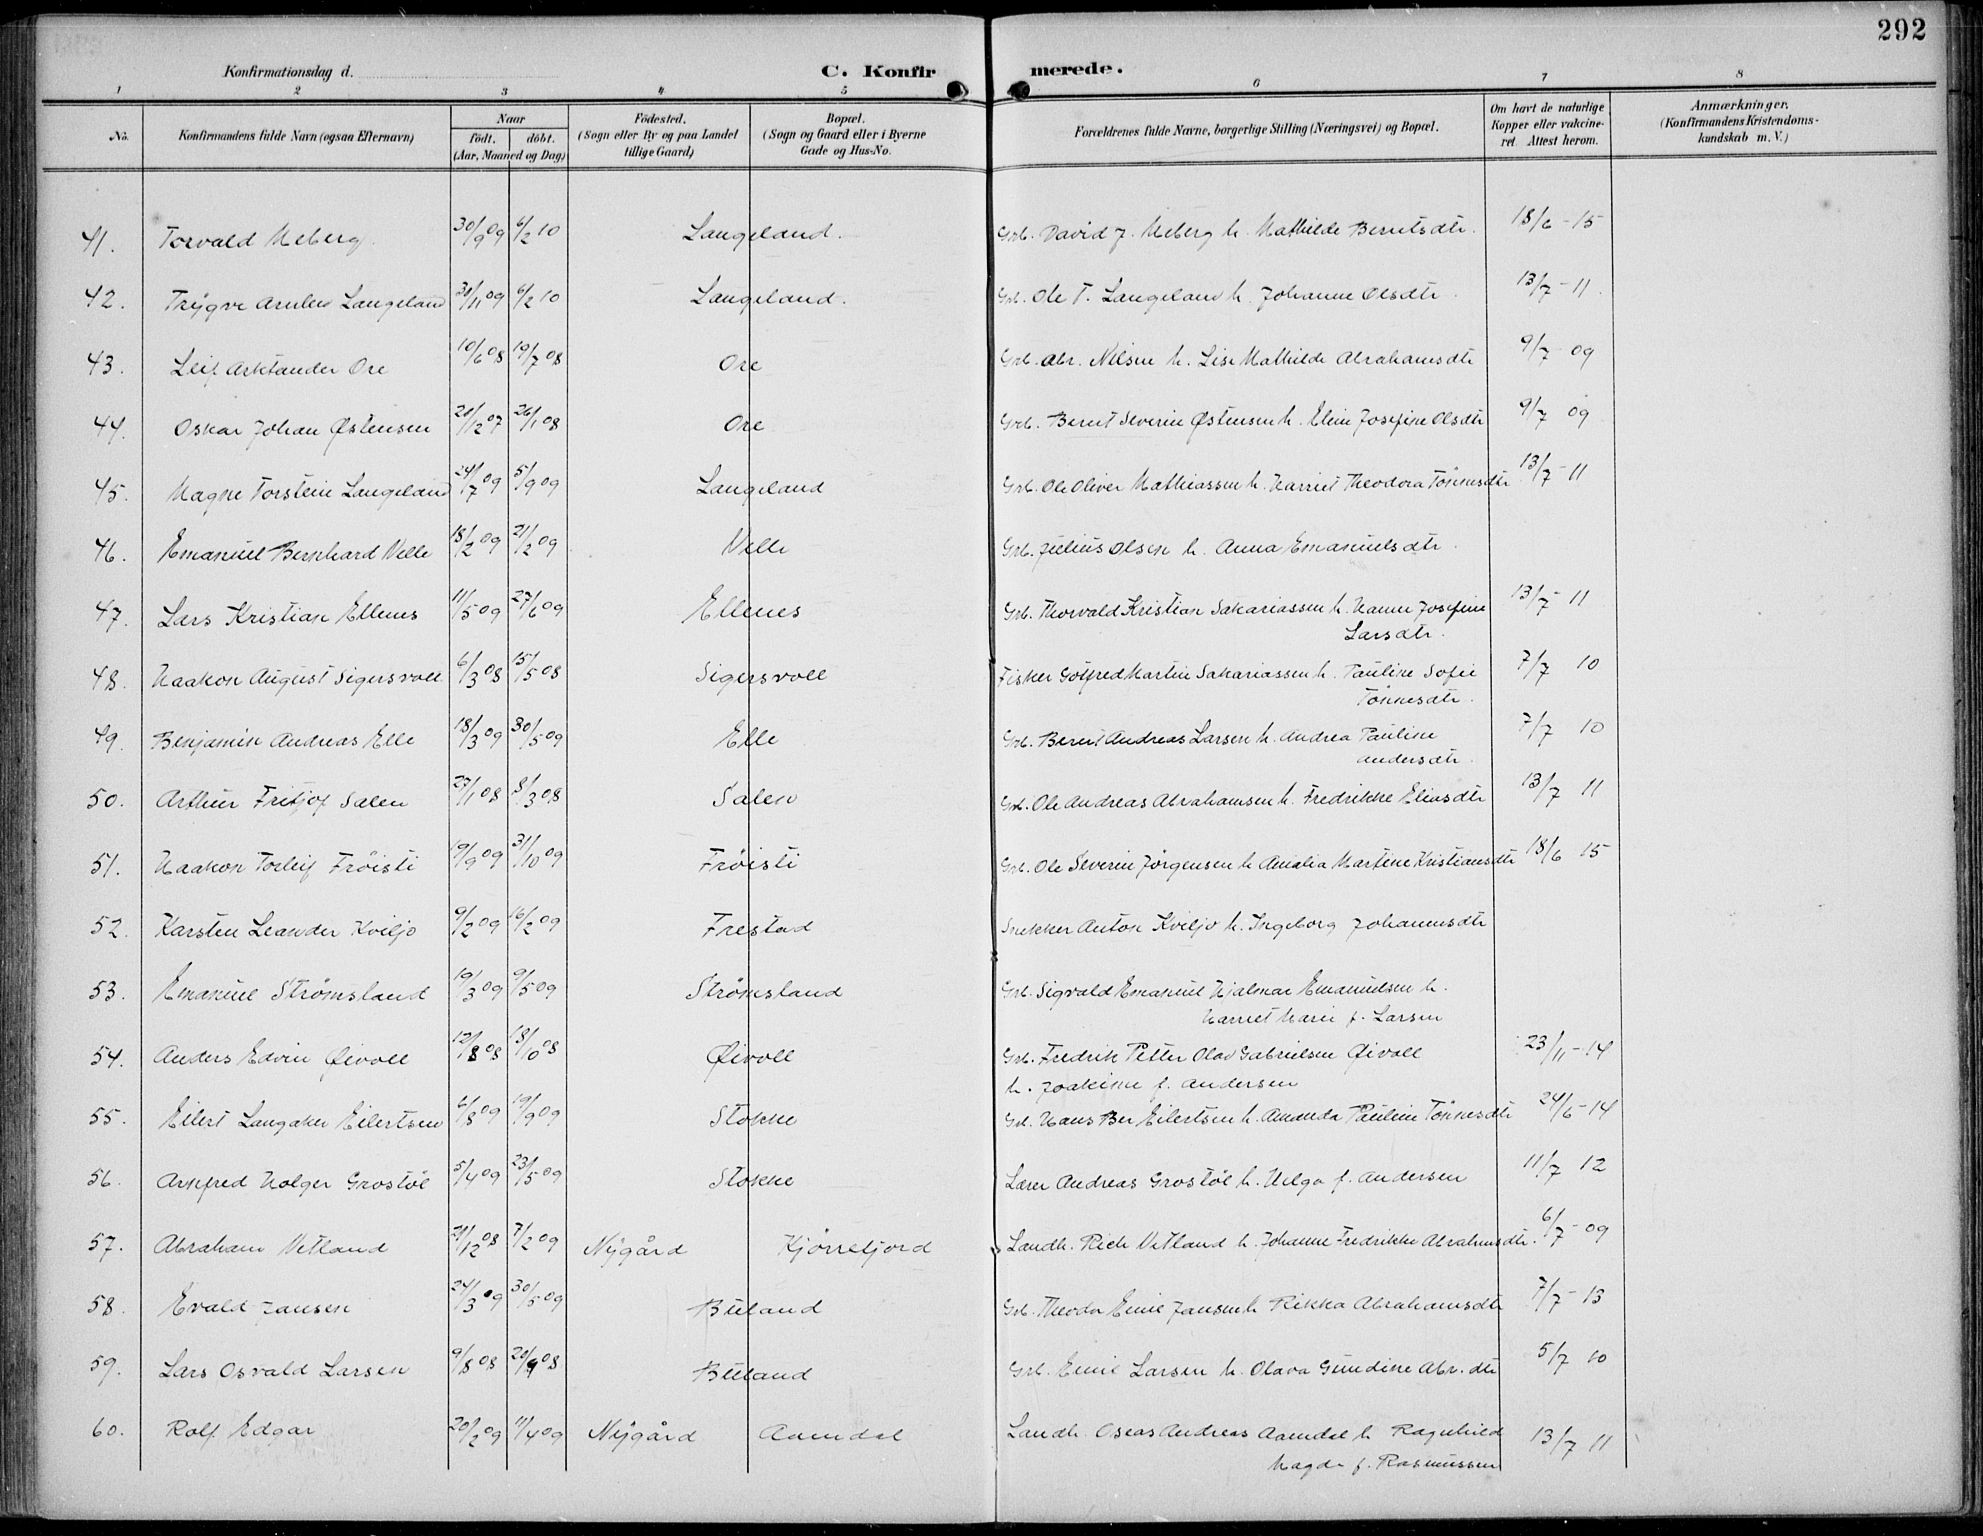 292
Konfirmationsdag d.
C. Konfirmerede.
1 2 3 4 5 6 7 8
No. Konfirmandens fulde Navn (ogsaa Efternavn) Naar født. døbt. (Aar, Maaned og Dag) Fødested. (Sogn eller By og paa Landet tillige Gaard) Bopæl. (Sogn og Gaard eller i Byerne Gade og Hus-No. Forældrenes fulde Navne, borgerlige Stilling (Næringsvei) og Bopæl. Om havt de naturlige Kopper eller vakcineret. Attest herom. Anmærkninger. (Konfirmandens Kristendomskundskab m. V.)
41. Torvald Meberg 30/9 09 6/2 10 Langeland. Grb. David J. Meberg h. Mathilde Berntsdtr. 18/6-15
42. Trygve Arnlev Langeland 30/11 09 6/2 10 Langeland. Grb. Ole T. Langeland h. Johanne Olsdtr. 13/7-11.
43. Leif Arktander Ore 10/6 08 19/7 08 Ore Grb. Abr. Nilsen h. Lise Mathilde Abrahamsdtr 9/7 09
44. Oskar Johan Østensen 20/12 07 26/1 08 Ore Grb. Bernt Severin Østensen h. Elen Josefine Olsdtr 9/7 09
45. Magne Torstein Langeland 24/7 09 5/9 09 Langeland Grb. Ole Oliver Mathiassen h. Harriet Theodora Tönnesdtr 13/7-11
46. Emanuel Bernhard Velle 18/2 09 21/2 09 Velle Grb. Julius Olsen h. Anna Emanuelsdtr.
47. Lars Kristian Ellenes 11/5 09 27/6 09 Ellenes Grb. Thorvald Kristian Sakariassen h. Hanne Josefine 13/7-11
Larsdtr.
48. Haakon August Sigersvoll 6/3 08 15/5 08 Sigersvoll Fisker Gotfred Martin Sakariassen h. Pauline Sofie 7/7 10
Tönnesdtr.
49. Benjamin Andreas Elle 18/3 09 30/5 09 Elle Grb. Bernt Andreas Larsen h. Andrea Pauline 7/7 10
Andersdtr.
50. Arthur Fritjof Salen 27/1 08 8/3 08 Salen Grb. Ole Andreas Abrahamsen h. Fredrikke Eliasdtr 13/7 11
51. Haakon Torleif Fröisti 19/9 09 31/10 09 Fröisti Grb. Ole Severin Jörgensen h. Amalia Martine Kristiansdtr 18/6 15
52. Karsten Leander Kviljo 9/2 09 16/2 09 Frestad Snekker Anton Kviljo h. Ingeborg Johannesdtr
53. Emanuel Strömsland 19/3 09 9/5 09 Strömsland Grb. Sigvald Emanuel Hjalmar Emanuelsen h.
Harriet Marie f. Larsen
54. Anders Edvin Øivoll 12/8 08 18/10 08 Øivoll Grb. Fredrik Petter Olav Gabrielsen Øivoll 23/11-14
h. Joakime f. Andersen
55. Eilert Langaker Eilertsen 6/8 09 19/9 09 Stokke Grb. Hans Ber Eilertsen h. Amanda Pauline Tönnesdtr 24/6-14
56. Arnfred Holger Grostöl 5/4 09 23/5 09 Stokke Lærer Andreas Grostöl h. Helga f. Andersen 11/7 12
57. Abraham Vetland 21/12 08 7/2 09 Nygård Kjörrefjord Landh. Rich Vetland h. Johanne Fredrikke Abrahamsdtr. 6/7-09
58. Evald Jansen 24/3 09 30/5 09 Büland Grb. Theodor Emil Jansen h. Rikka Abrahamsdtr 7/7-13
59. Lars Osvald Larsen 9/8 08 20/9 08 Büland Grb. Emil Larsen h. Olava Gundine Abr. dtr 5/7 10
60. Rolf Edgar 20/2 09 11/4 09 Nygård Aamdal Landh. Oseas Andreas Aamdal h. Ragnhild 13/7 11
Magda f. Rasmussen